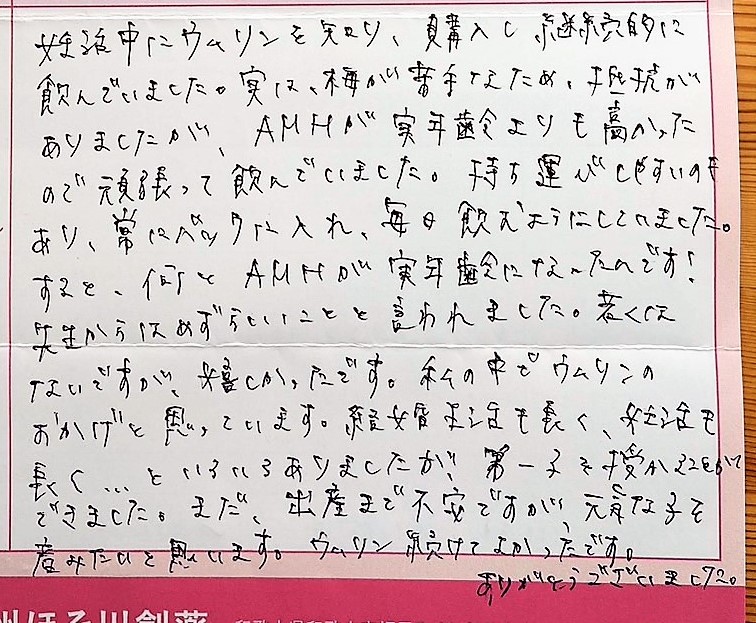 妊活中にウムリンを知り、購入し継続的に
飲んでいました。実は、梅が苦手なため、抵抗が
ありましたが、AMHが実年齢よりも高かった
ので頑張って飲んでいました。持ち運びしやすいのも
あり、常にバックに入れ、毎日飲むようにしていました。
すると、何とAMHが実年齢になったんです!
先生からはめずらしいことと言われました。若くは
ないですが、嬉しかったです。私の中でウムリンの
おかげと思っています。結婚生活も長く、妊活も
長く…といろいろありましたが、第一子を授かることが
できました。まだ、出産まで不安ですが、元気な子を
産みたいと思います。ウムリン続けてよかったです。
ありがとうございました。
ほそ川創薬